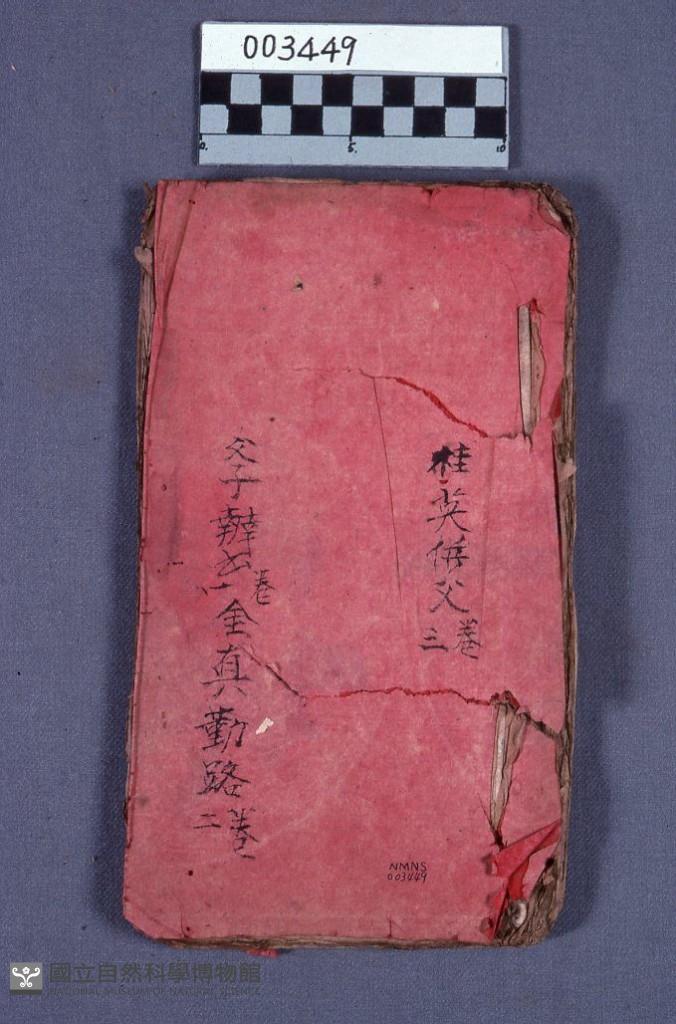 003449
0. 5. 10
桂英併父
三卷
父子辦公
一卷
金真勤路
二卷
NMNS
003449
國立自然科學博物館
NATIONAL MUSEUM OF NATURAL SCIENCE